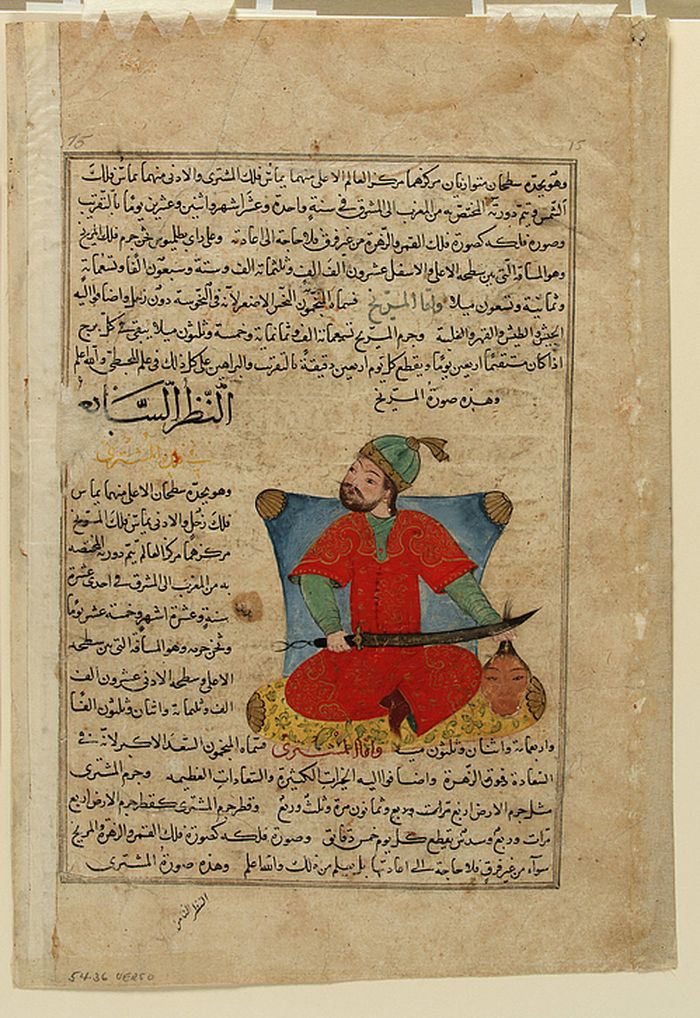 75 15
وهو يحدّه سطحان متوازيان مركزهما مركز العالم الاعلى منهما يماس فلك المشترى والادنى منهما يماس فلك
الشمس ويتم دورته المختصة به من المغرب الى المشرق فى سنة واحدة وعشرة اشهر واثنين وعشرين يوما بالتقريب
وصورة فلكه كصورة فلك القمر والزهرة من غير فرق فلا حاجة الى اعادته وعلى راى بطليوس ثخن جرم فلك المريخ
وهو المسافة التى بين سطحه الاعلى والاسفل عشرون الف الف وثلثمائة الف وستة وسبعون الفا وتسعمائة
وثمانية وتسعون ميلا واما المريخ فسماه المنجمون النحس الاصغر لانه فى النحوسة دون زحل واضافوا اليه
والطيش والقهر والغلبة وجرم المريخ تسعمائة الف وثمانمائة وخمسة وثلثون ميلا يبقى فى كل برج
اذا كان مستقيما اربعين يوما ويقطع كل يوم اربعين دقيقة بالتقريب والبراهين على كل ذلك فى علم المجسطى والله اعلم
وهذه صورة المريخ
النظر السابع
فى فلك المشترى
وهو يحدّه سطحان الاعلى منهما يماس
فلك زحل والادنى يماس فلك المريخ
مركزهما مركز العالم يتم دورته المختصة
به من المغرب الى المشرق فى احدى عشرة
سنة وعشرة اشهر وخمسة عشر يوما
وثخن جرمه وهو المسافة التى بين سطحه
الاعلى وسطحه الادنى عشرون الف
الف وثلثمائة واثنان وثلثون الفا
واربعمائة واثنان وثلثون ميلا واما المشترى فسماه المنجمون السعد الاكبر لانه فى
السعادة فوق الزهرة واضافوا اليه الخيرات الكثيرة والسعادات العظيمه وجرم المشترى
مثل جرم الارض اربع مرات وربع وثمانون مرة وثلث وربع وقطر جرم المشترى كقطر جرم الارض اربع
مرات وربع وسدس يقطع كل يوم خمس دقايق وصورة فلكه كصورة فلك القمر والزهرة والمريخ
سواء من غير فرق فلا حاجة الى اعادتها بل يعلم من ذلك والله اعلم وهذه صورة المشترى
النظر الثامن
54.36 VERSO